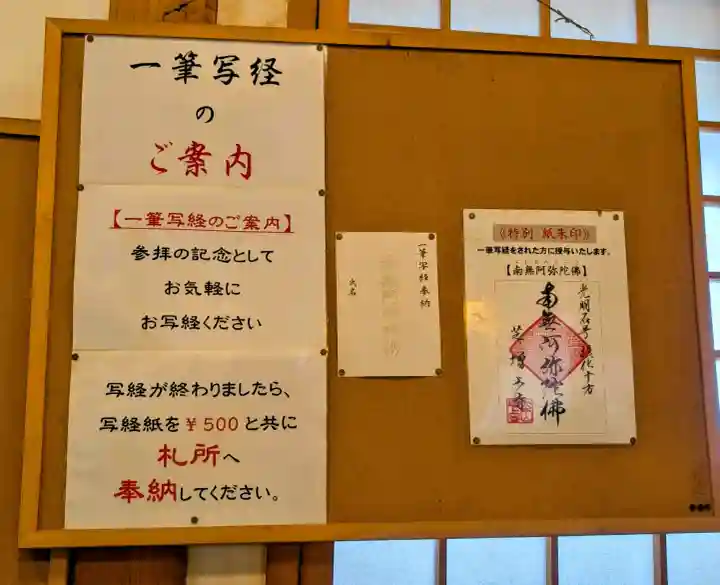 一筆写経
の
ご案内
【一筆写経のご案内】
参拝の記念として
お気軽に
お写経ください
写経が終わりましたら、
写経紙を￥500と共に
札所へ
奉納してください。
一筆写経奉納
氏名
《特別 紙朱印》
一筆写経をされた方に授与いたします。
【南無阿弥陀佛】
南無阿弥陀佛